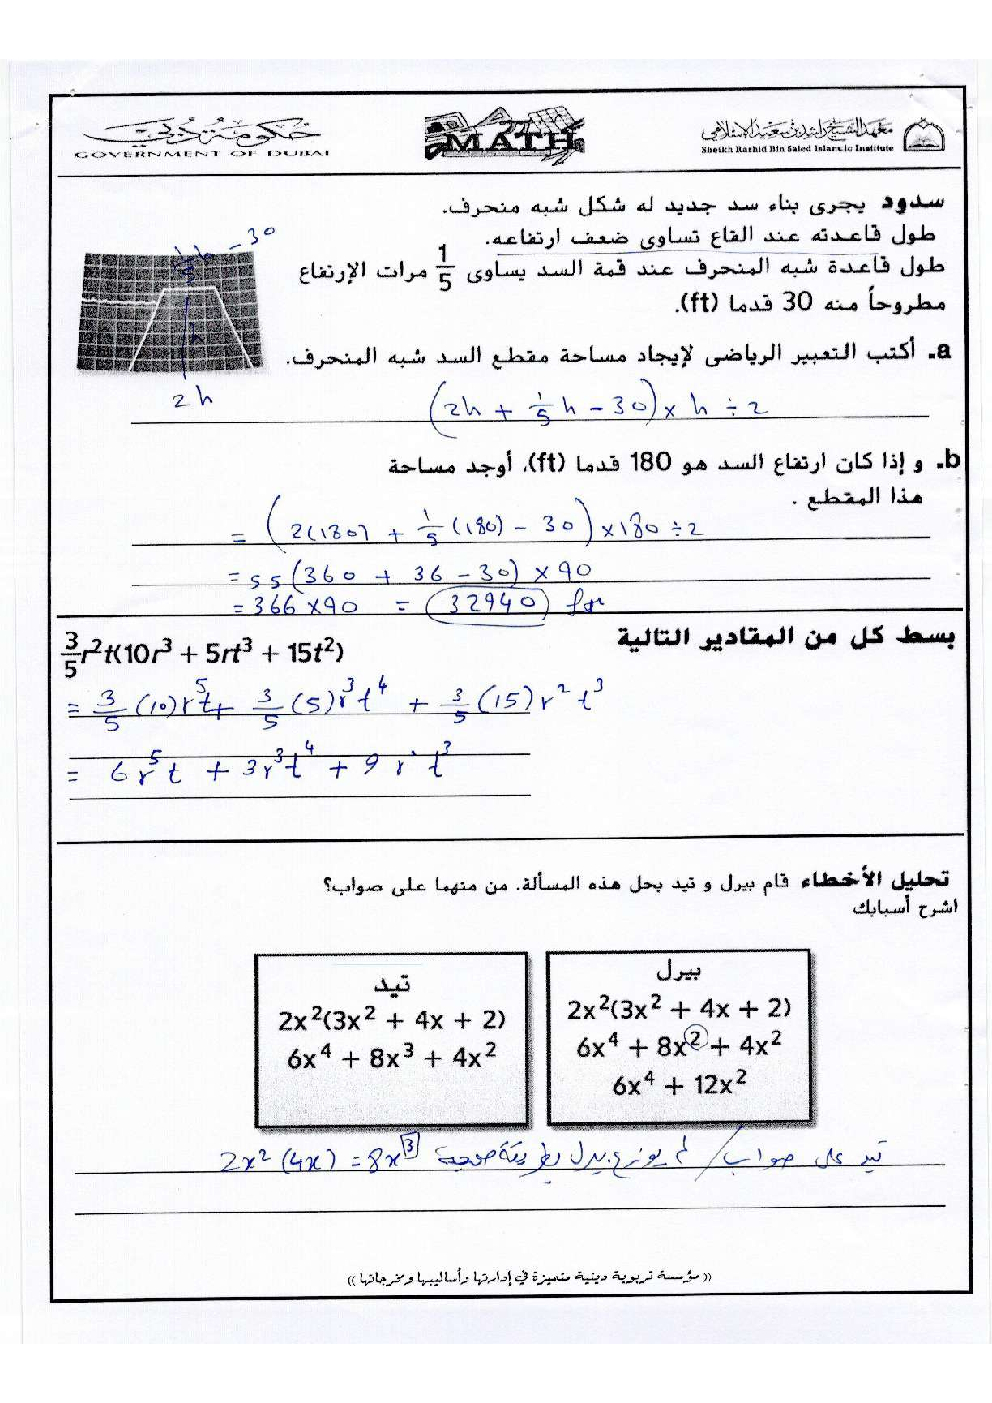 حكومة دبي
GOVERNMENT OF DUBAI
MATH
معهد الشيخ راشد بن سعيد الإسلامي
Sheikh Rashid Bin Saied Islamic Institute
سدود يجرى بناء سد جديد له شكل شبه منحرف.
طول قاعدته عند القاع تساوى ضعف ارتفاعه.
طول قاعدة شبه المنحرف عند قمة السد يساوى 1/5 مرات الإرتفاع
مطروحاً منه 30 قدما (ft).
1/5 h - 30
2h
a. أكتب التعبير الرياضى لإيجاد مساحة مقطع السد شبه المنحرف.
(2h + 1/5 h - 30) × h ÷ 2
b. و إذا كان ارتفاع السد هو 180 قدما (ft)، أوجد مساحة
هذا المقطع .
= (2(180) + 1/5 (180) - 30) × 180 ÷ 2
= 55(360 + 36 - 30) × 90
= 366 × 90 = 32940
بسط كل من المقادير التالية
3/5 r²t(10r³ + 5rt³ + 15t²)
= 3/5 (10) r⁵t + 3/5 (5) r³t⁴ + 3/5 (15) r²t³
= 6r⁵t + 3r³t⁴ + 9r²t³
تحليل الأخطاء قام بيرل و تيد بحل هذه المسألة. من منهما على صواب؟
اشرح أسبابك
بيرل
2x²(3x² + 4x + 2)
6x⁴ + 8x² + 4x²
6x⁴ + 12x²
تيد
2x²(3x² + 4x + 2)
6x⁴ + 8x³ + 4x²
تيد على صواب / لم يوزع بيرل بطريقة صحيحة 2x² (4x) = 8x³
(( مؤسسة تربوية دينية متميزة في إدارتها وأساليبها ومخرجاتها ))